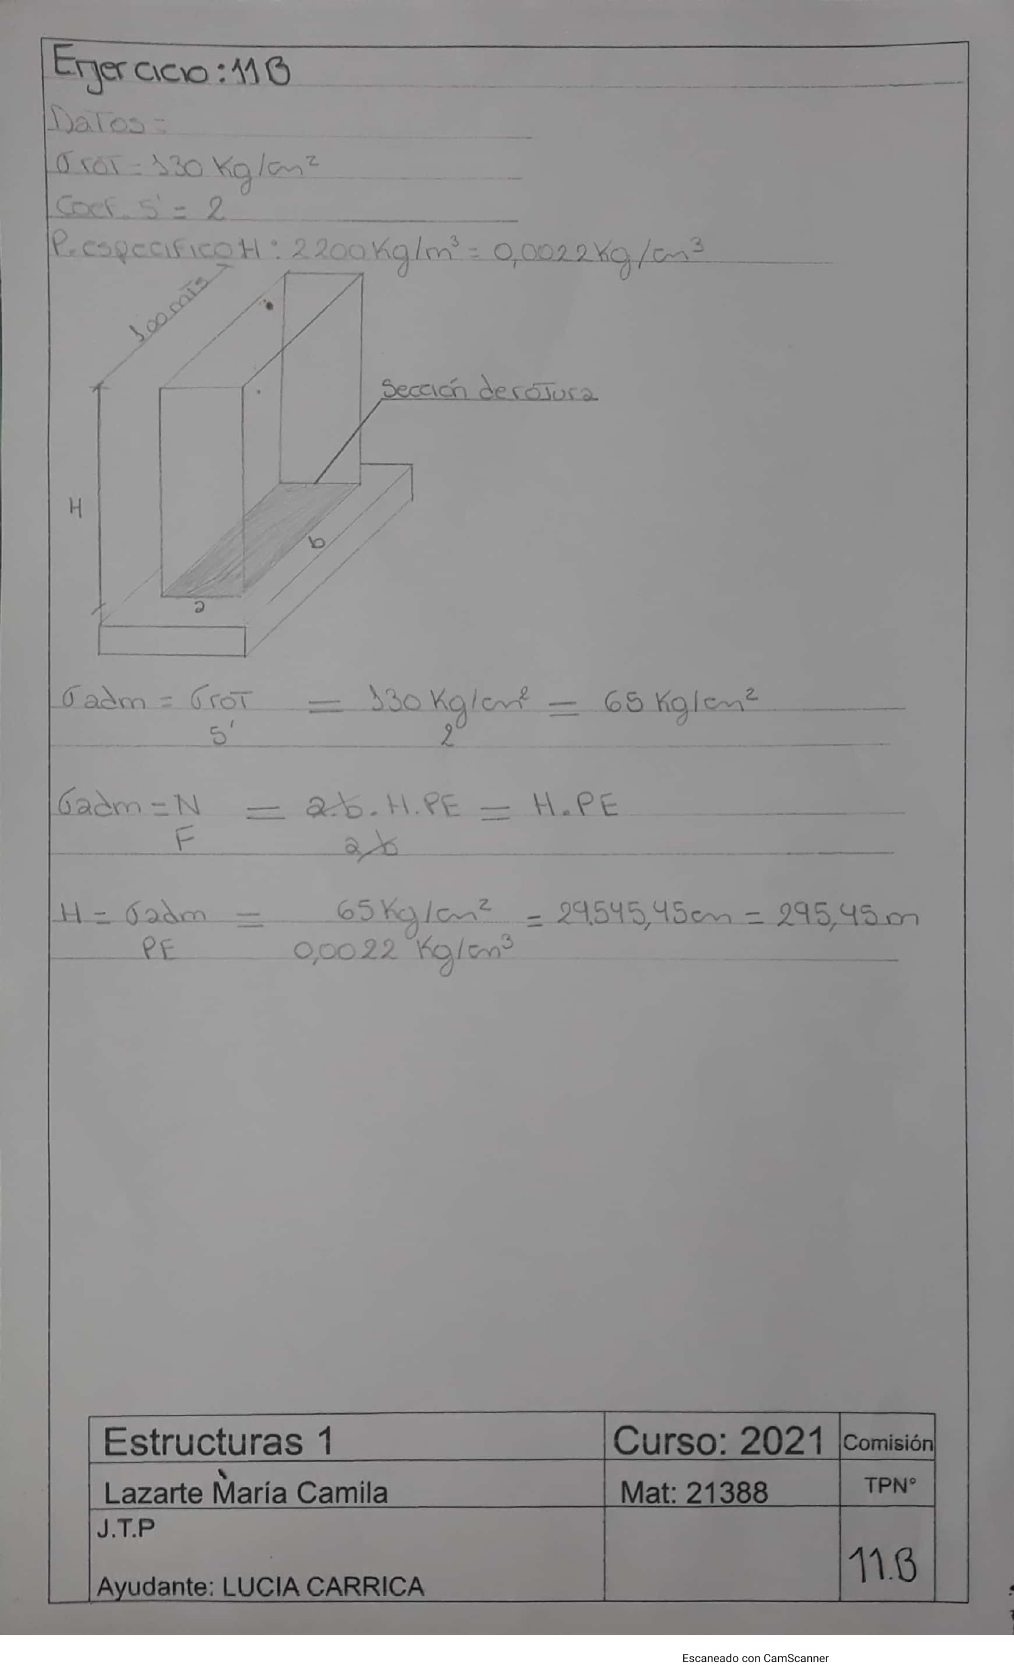 Ejercicio: 11B
Datos =
σrot = 130 Kg/cm²
Coef. S' = 2
P. especifico H : 2200 Kg/m³ = 0,0022 Kg/cm³
100 mts
Sección de rotura
H
b
a
σadm = σrot = 130 Kg/cm² = 65 Kg/cm²
S' 2
σadm = N = a.b.H.PE = H.PE
F a.b
H = σadm = 65 Kg/cm² = 29.545,45 cm = 295,45 m
PE 0,0022 Kg/cm³
Estructuras 1 Curso: 2021 Comisión
Lazarte María Camila Mat: 21388 TPN°
J.T.P
11.B
Ayudante: LUCIA CARRICA
Escaneado con CamScanner